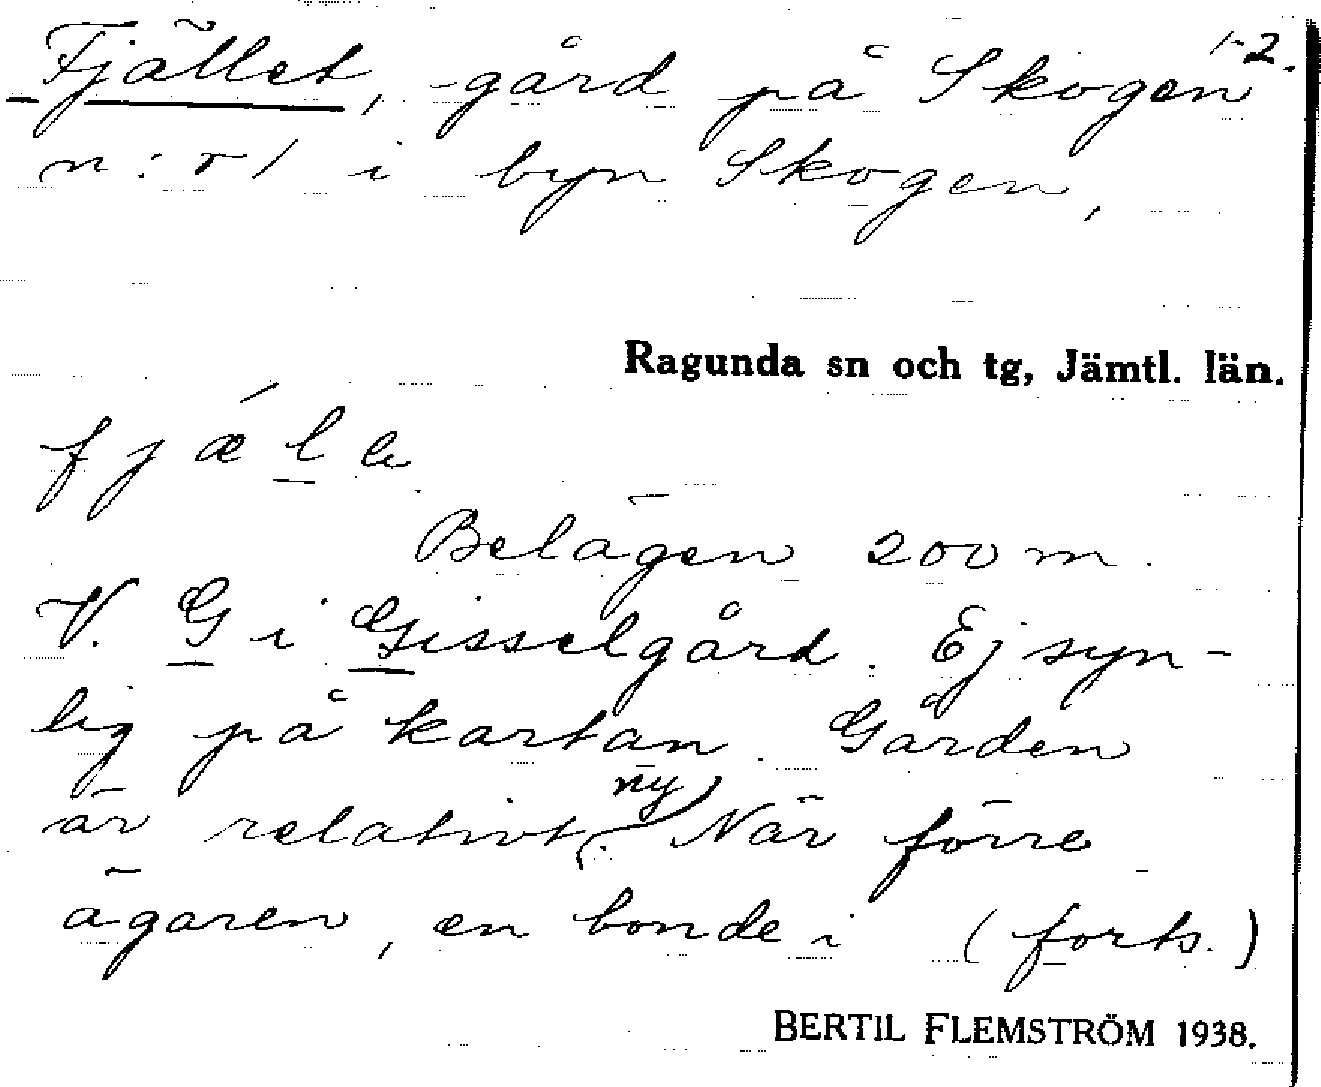 1-2.
Fjället, gård på Skogen
n:r 1 i byn Skogen,
Ragunda sn och tg, Jämtl. län.
Belägen 200 m.
V. G i Gisselgård. Ej syn-
lig på kartan. Gården
är relativt ny. När förre
ägaren, en bonde i (forts.)
BERTIL FLEMSTRÖM 1938.